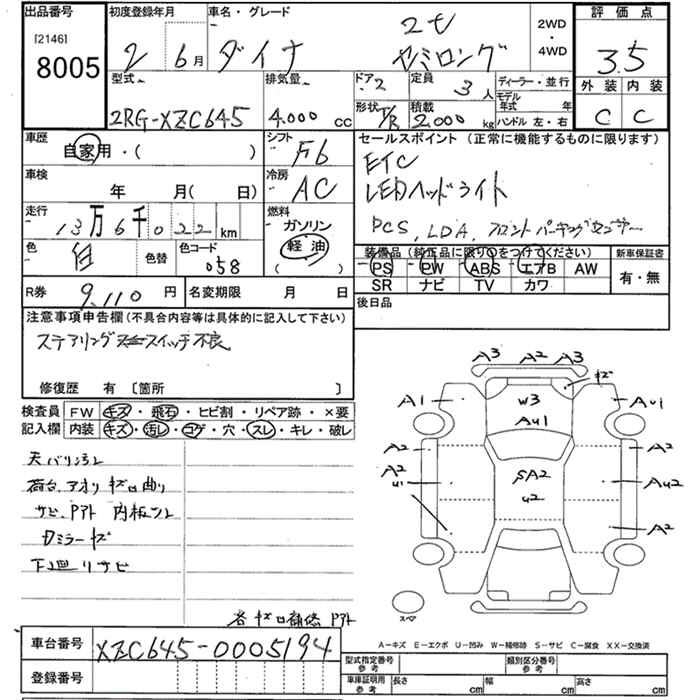 出品番号 初度登録年月 車名・グレード 2WD・4WD 評価点
[2146] 8005 2 6月 ダイナ 2t セミロング 3.5
型式 排気量 ドア 2 定員 3人 ディーラー・並行 外装 内装
2RG-XZC645 4.000cc 形状 T/R 積載 2.000kg モデル年式 年 ハンドル 左・右 C C
車歴 自家用・( ) シフト F6 セールスポイント (正常に機能するものに限ります)
車検 年 月(日) 冷房 AC ETC
LEDヘッドライト
走行 13万6千022km 燃料 ガソリン 軽油 ( )
PCS, LDA, フロントパーキングセンサー
色 白 色替 色コード 058
装備品 (純正品に限り○をつけてください) 新車保証書
PS PW ABS エアB AW 有・無
SR ナビ TV カワ
R券 9.110円 名変期限 月 日 後日品
注意事項申告欄 (不具合内容等は具体的に記入して下さい)
ステアリングスイッチ不良
修復歴 有 〔箇所 〕
検査員 FW キズ・飛石・ヒビ割・リペア跡・×要
記入欄 内装 キズ・汚レ・コゲ・穴・スレ・キレ・破レ
荷台、アオリ キズ凹曲り
サビ、Pアト
ミラーキズ
下廻リサビ
各キズ凹補修 Pアト
A3 A2 A3
キズ
A1 W3 AU1
AU1
A2 A2
A2 SA2 AU2
U1 U2
A2
スペア
A-キズ E-エクボ U-凹み W-補修跡 S-サビ C-腐食 XX-交換済
車台番号 XZC645-0005194
型式指定番号 参考 類別区分番号 参考
登録番号 車庫証明用 参考 長さ cm 幅 cm 高さ cm